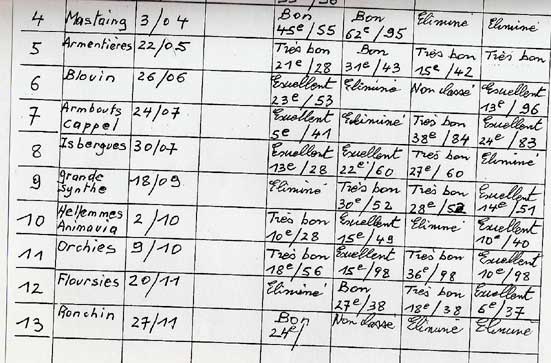 4 Mastaing 3/04 Bon Bon Eliminé Eliminé
45e/55 62e/95
5 Armentières 22/05 Très bon Bon Très bon Très bon
21e/28 31e/43 15e/42
6 Blouin 26/06 Excellent Eliminé Non classé Excellent
23e/53 13e/96
7 Armbouts Cappel 24/07 Excellent Eliminé Très bon Excellent
5e/41 38e/84 24e/83
8 Isbergues 30/07 Excellent Excellent Très bon Eliminé
13e/28 22e/60 27e/60
9 Grande Synthe 18/09 Eliminé Très bon Très bon Excellent
30e/52 28e/52 14e/51
10 Hellemmes Animavia 2/10 Très bon Excellent Eliminé Excellent
10e/28 15e/49 10e/40
11 Orchies 9/10 Très bon Excellent Très bon Excellent
18e/56 15e/98 36e/98 10e/98
12 Floursies 20/11 Eliminé Bon Très bon Excellent
27e/38 18e/38 6e/37
13 Ronchin 27/11 Bon Non classe Eliminé Eliminé
24e/